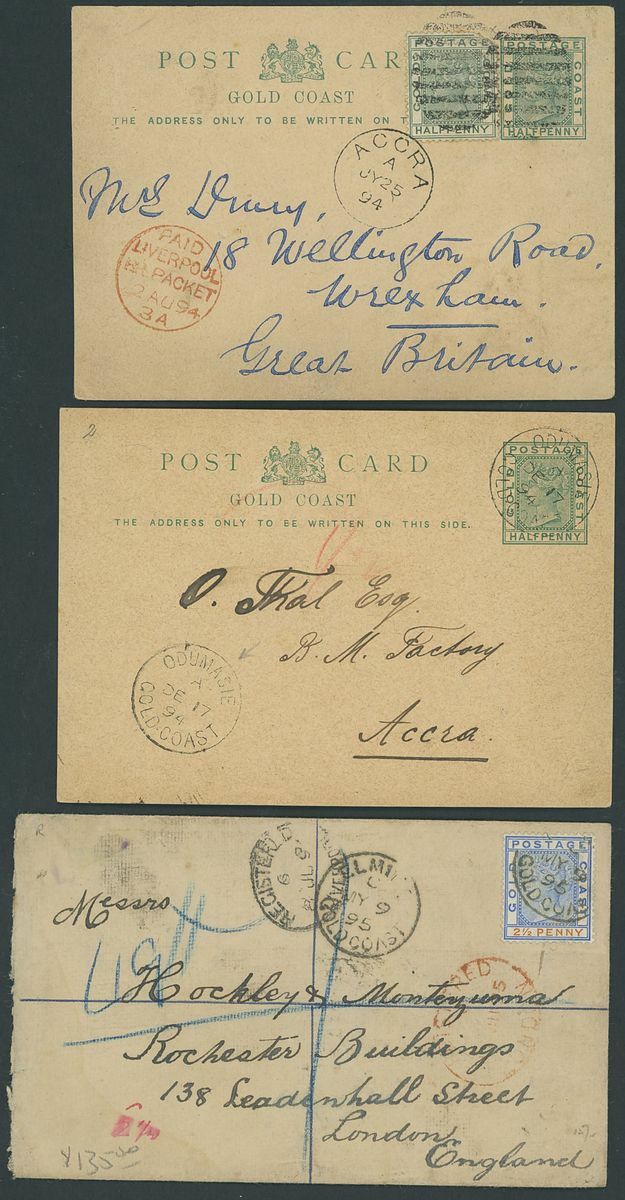 POST CARD
GOLD COAST
THE ADDRESS ONLY TO BE WRITTEN ON
POSTAGE
HALFPENNY
POSTAGE
COAST
HALFPENNY
ACCRA
A
JY 25
94
Mrs Drury,
18 Wellington Road.
Wrexham.
Great Britain.
PAID
LIVERPOOL
PACKET
2 AU 94
3A
POST CARD
GOLD COAST
THE ADDRESS ONLY TO BE WRITTEN ON THIS SIDE.
POSTAGE
GOLD COAST
HALFPENNY
O. Esq.
B. M. Factory
Accra.
ODUMASIE
A
DE 17
94
GOLD-COAST
R
REGISTERED
MY 9
95
POSTAGE
COAST
2½ PENNY
MY 9
95
Messrs
Hockley & Montezuma
Rochester Buildings
138 Leadenhall Street
London
England